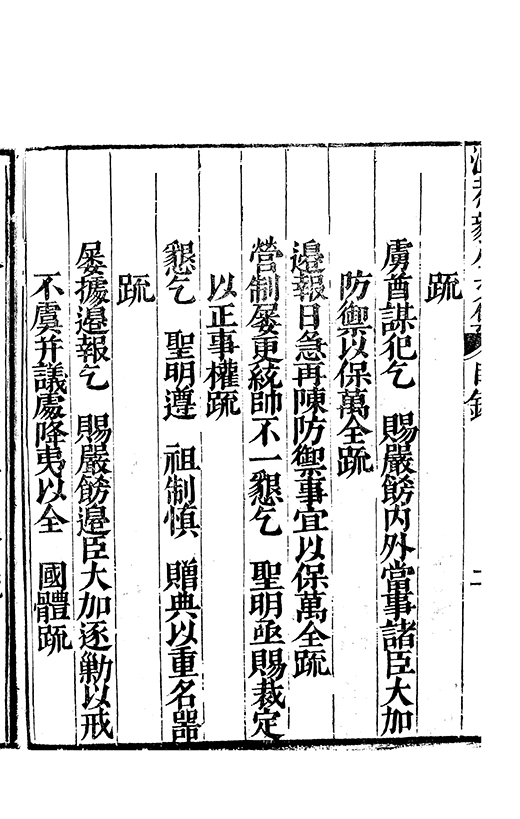 疏
虜酋謀犯乞　賜嚴飭內外當事諸臣大加
防禦以保萬全疏
邉報日急再陳防禦事宜以保萬全疏
營制屡更統帥不一懇乞　聖明亟賜裁定
以正事權疏
懇乞　聖明遵　祖制慎　贈典以重名器
疏
屡據邉報乞　賜嚴飭邉臣大加逐勦以戒
不虞并議處降夷以全　國體疏